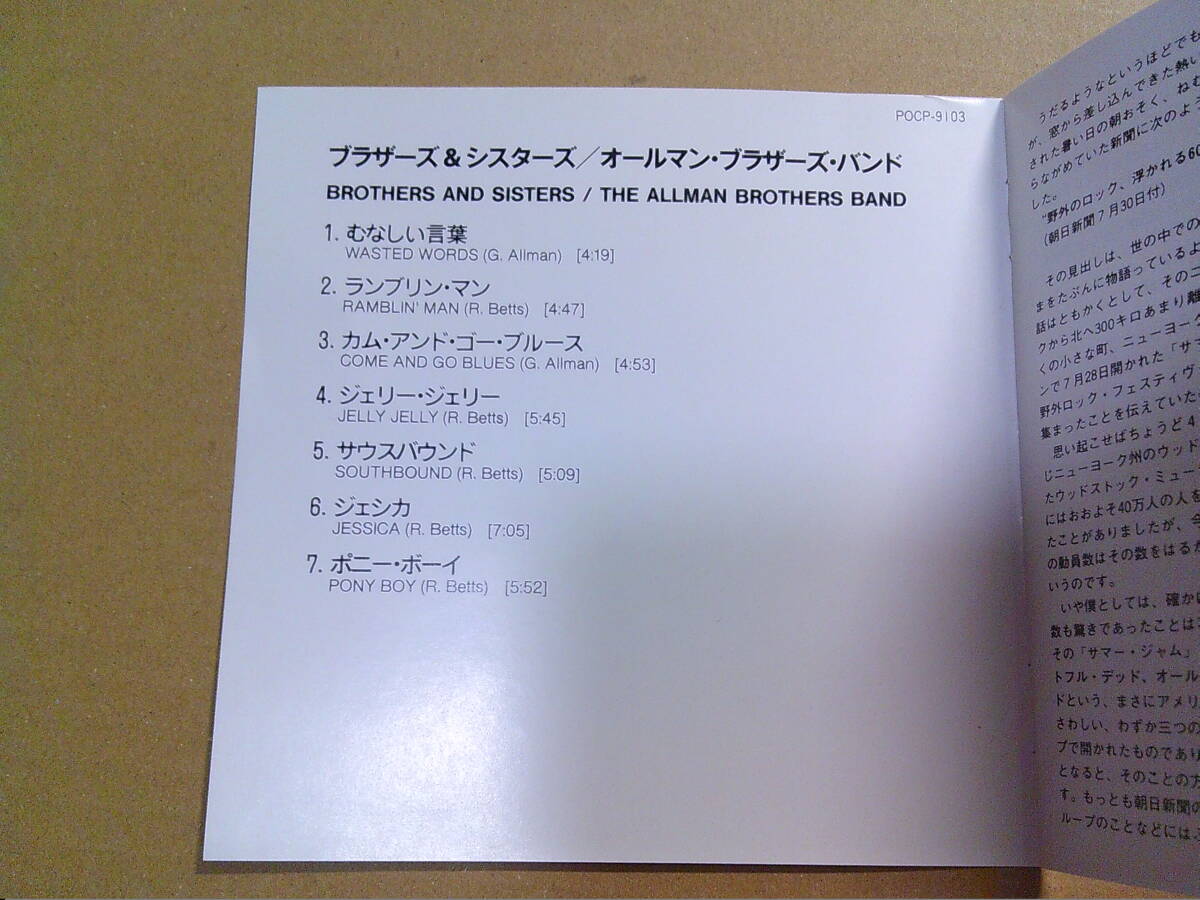 POCP-9103
ブラザーズ&シスターズ/オールマン・ブラザーズ・バンド
BROTHERS AND SISTERS / THE ALLMAN BROTHERS BAND
1. むなしい言葉
WASTED WORDS (G. Allman) [4:19]
2. ランブリン・マン
RAMBLIN' MAN (R. Betts) [4:47]
3. カム・アンド・ゴー・ブルース
COME AND GO BLUES (G. Allman) [4:53]
4. ジェリー・ジェリー
JELLY JELLY (R. Betts) [5:45]
5. サウスバウンド
SOUTHBOUND (R. Betts) [5:09]
6. ジェシカ
JESSICA (R. Betts) [7:05]
7. ポニー・ボーイ
PONY BOY (R. Betts) [5:52]
うだるようなというほどでも
が、窓から差し込んできた熱い
された暑い日の朝おそく、ねむ
らながめていた新聞に次のよう
した。
“野外のロック、浮かれる60
(朝日新聞7月30日付)
その見出しは、世の中での
まをたぶんに物語っているよ
話はともかくとして、そのニ
クから北へ300キロあまり離
くの小さな町、ニューヨーク
ンで7月28日開かれた「サマ
野外ロック・フェスティヴ
集まったことを伝えていた
思い起こせばちょうど4
じニューヨーク州のウッド
たウッドストック・ミュー
にはおおよそ40万人の人を
たことがありましたが、今
の動員数はその数をはるか
いうのです。
いや僕としては、確かに
数も驚きであったことは
その「サマー・ジャム」
トフル・デッド、オール
ドという、まさにアメリ
さわしい、わずか三つの
プで開かれたものであり
となると、そのことの方
す。もっとも朝日新聞の
ループのことなどには、